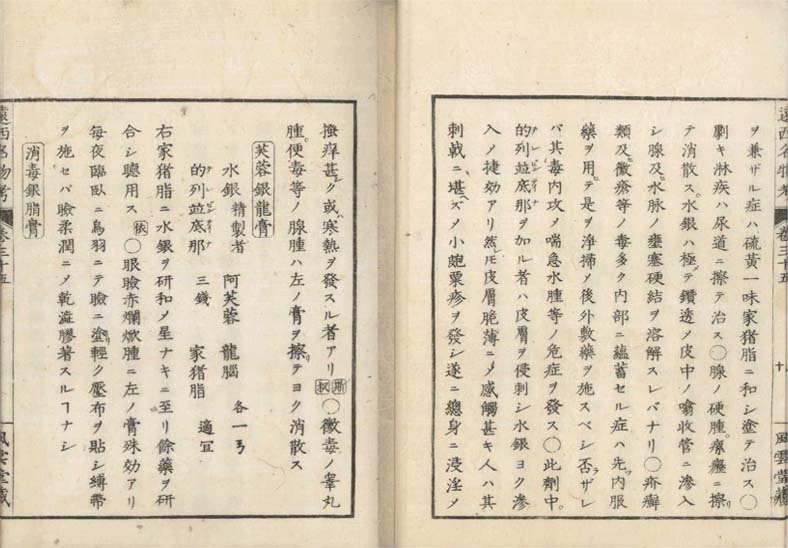 ヲ兼ザル症ハ硫黄一味家猪脂ニ和シ塗テ治ス〇
劇キ淋疾ハ尿道ニ擦テ治ス〇腺ノ硬腫瘰癧ニ擦リ
テ消散ス水銀ハ極テ鑽透ノ皮中ノ噏收管ニ滲入
シ腺及水脉ノ壅塞硬結ヲ溶解スレバナリ〇疥癬
類及黴瘡等ノ毒多ク内部ニ蘊蓄セル症ハ先内服
藥ヲ用テ是ヲ淨掃ノ後外敷藥ヲ施スベシ否ザレ
バ其毒内攻ノ喘急水腫等ノ危症ヲ發ス〇此劑中
的列並底那ヲ加ル者ハ皮膚ヲ侵刺シ水銀ヨク滲
入ノ捷効アリ然ㇳモ皮膚脆薄ニノ感觸甚キ人ハ其
刺戟ニ堪ヘズノ小皰粟疹ヲ發シ遂ニ總身ニ浸淫ノ
遠西名物考 卷三十五 十 風雲堂藏
搔痒甚ク或寒熱ヲ發スル者アリ 〇黴毒ノ睾丸
腫便毒等ノ腺腫ハ左ノ膏ヲ擦テヨク消散ス
芙蓉銀龍膏
水銀精製者 阿芙蓉 龍腦 各一弓
的列並底那 三錢 家猪脂 適冝
右家猪脂ニ水銀ヲ研和ノ星ナキニ至リ餘藥ヲ研
合シ聽用ス 〇眼瞼赤爛焮腫ニ左ノ膏殊効アリ
每夜臨臥ニ鳥羽ニテ瞼ニ塗リ輕ク壓布ヲ貼シ縛帶
ヲ施セバ瞼柔潤ニノ乾澁膠著スルヿナシ
消毒銀脂膏
遠西名物考 卷三十五 風雲堂藏